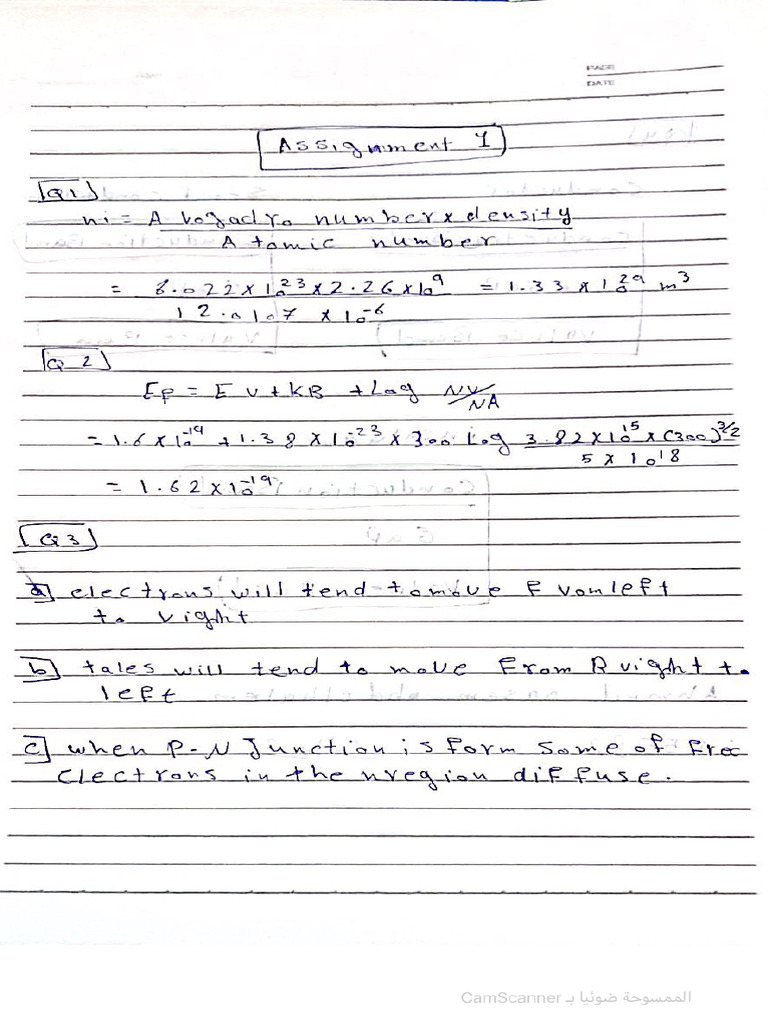 PAGE
DATE
Assignment 1
Q1
ni = Avogadro number x density
Atomic number
= 6.022 x 10^23 x 2.26 x 10^9 = 1.33 x 10^29 m^3
12.0107 x 10^-6
Q 2
EF = Ev + KB + Log NV/NA
= 1.6 x 10^-19 + 1.38 x 10^-23 x 300 Log 3.82 x 10^15 x (300)^3/2
5 x 10^18
= 1.62 x 10^-19
Q3
a) electrons will tend to move From left
to right
b) will tend to move From R right to
left
c) when P-N Junction is form some of free
Electrons in the n region diffuse.
CamScanner الممسوحة ضوئيا بـ